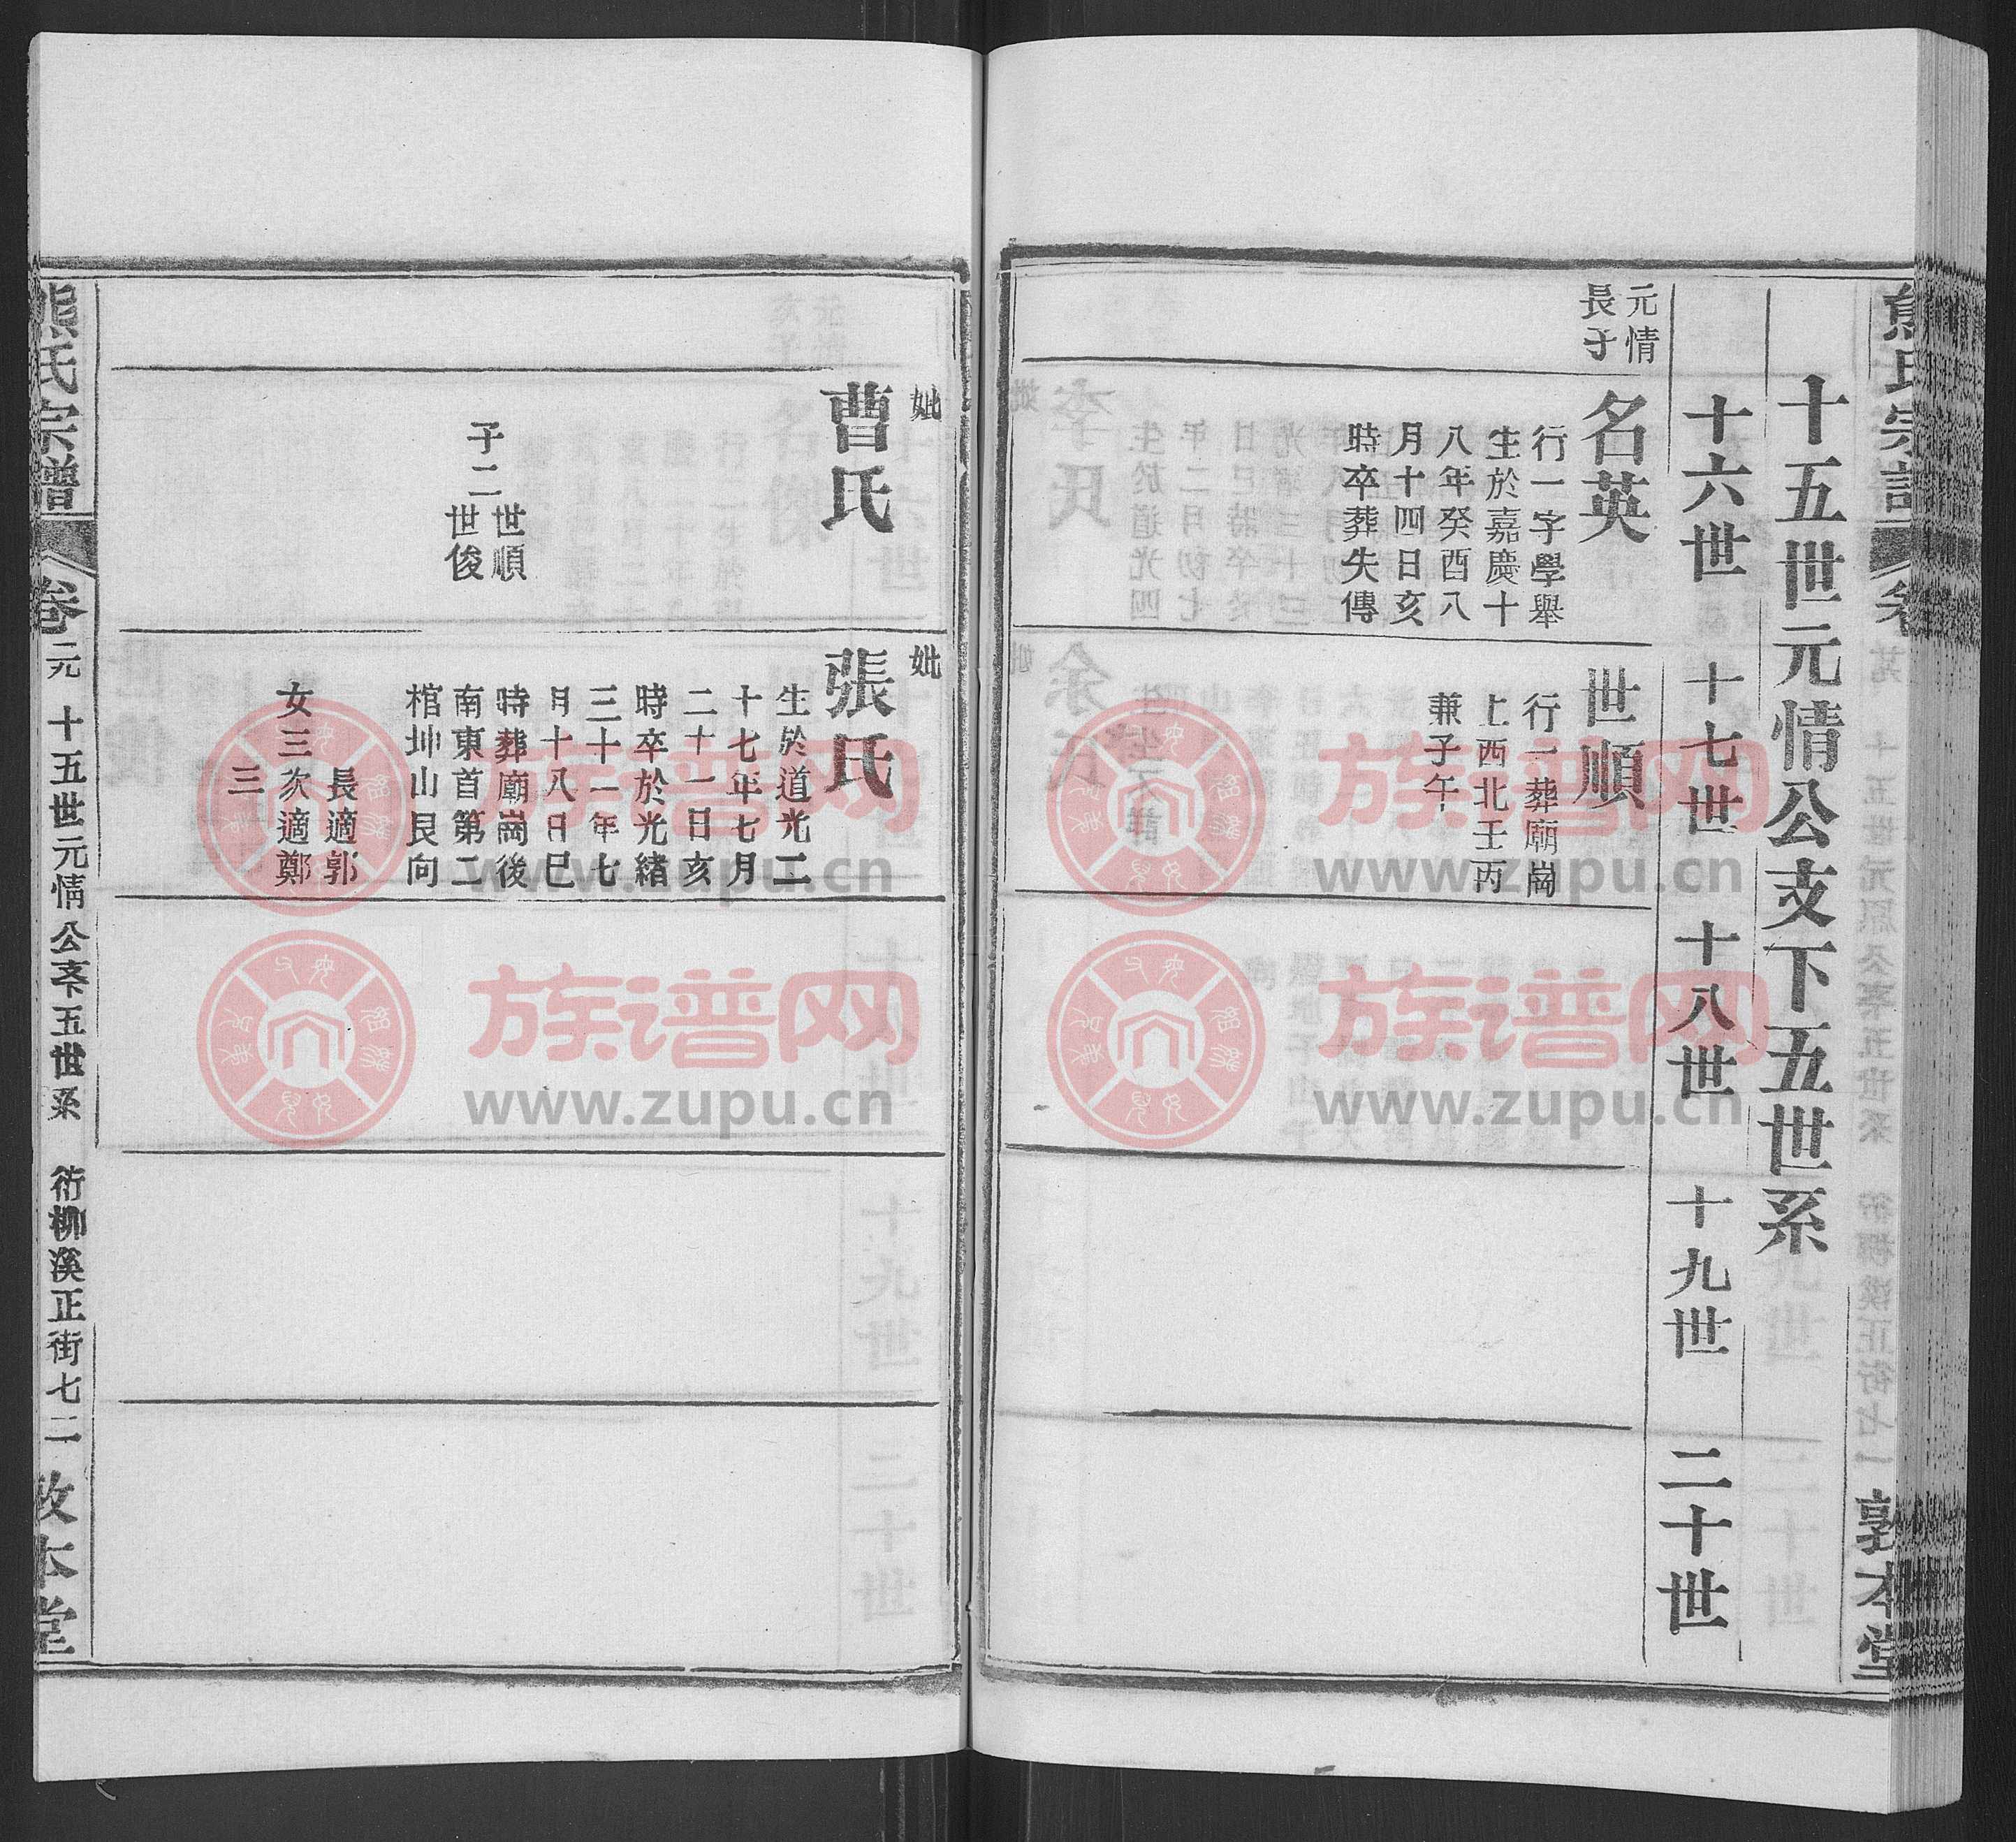 十五世元情公支下五世系
十六世
十七世
十八世
十九世
二十世
元情
長子
名英
行一字學舉
生於嘉慶十
八年癸酉八
月十四日亥
時卒葬失傳
世順
行一葬廟崗
上西北壬丙
兼子午
妣
曹氏
子二
世順
世俊
妣
張氏
生於道光二
十七年七月
二十一日亥
時卒於光緒
三十一年七
月十八日巳
時葬廟崗後
南東首第二
棺坤山艮向
女三
長適郭
次適鄭
三
熊氏宗譜
卷元
十五世元情公支下五世系
衖柳溪正街七二
敦本堂
敦本堂
族谱网
www.zupu.cn
族谱网
www.zupu.cn
族谱网
www.zupu.cn
族谱网
www.zupu.cn